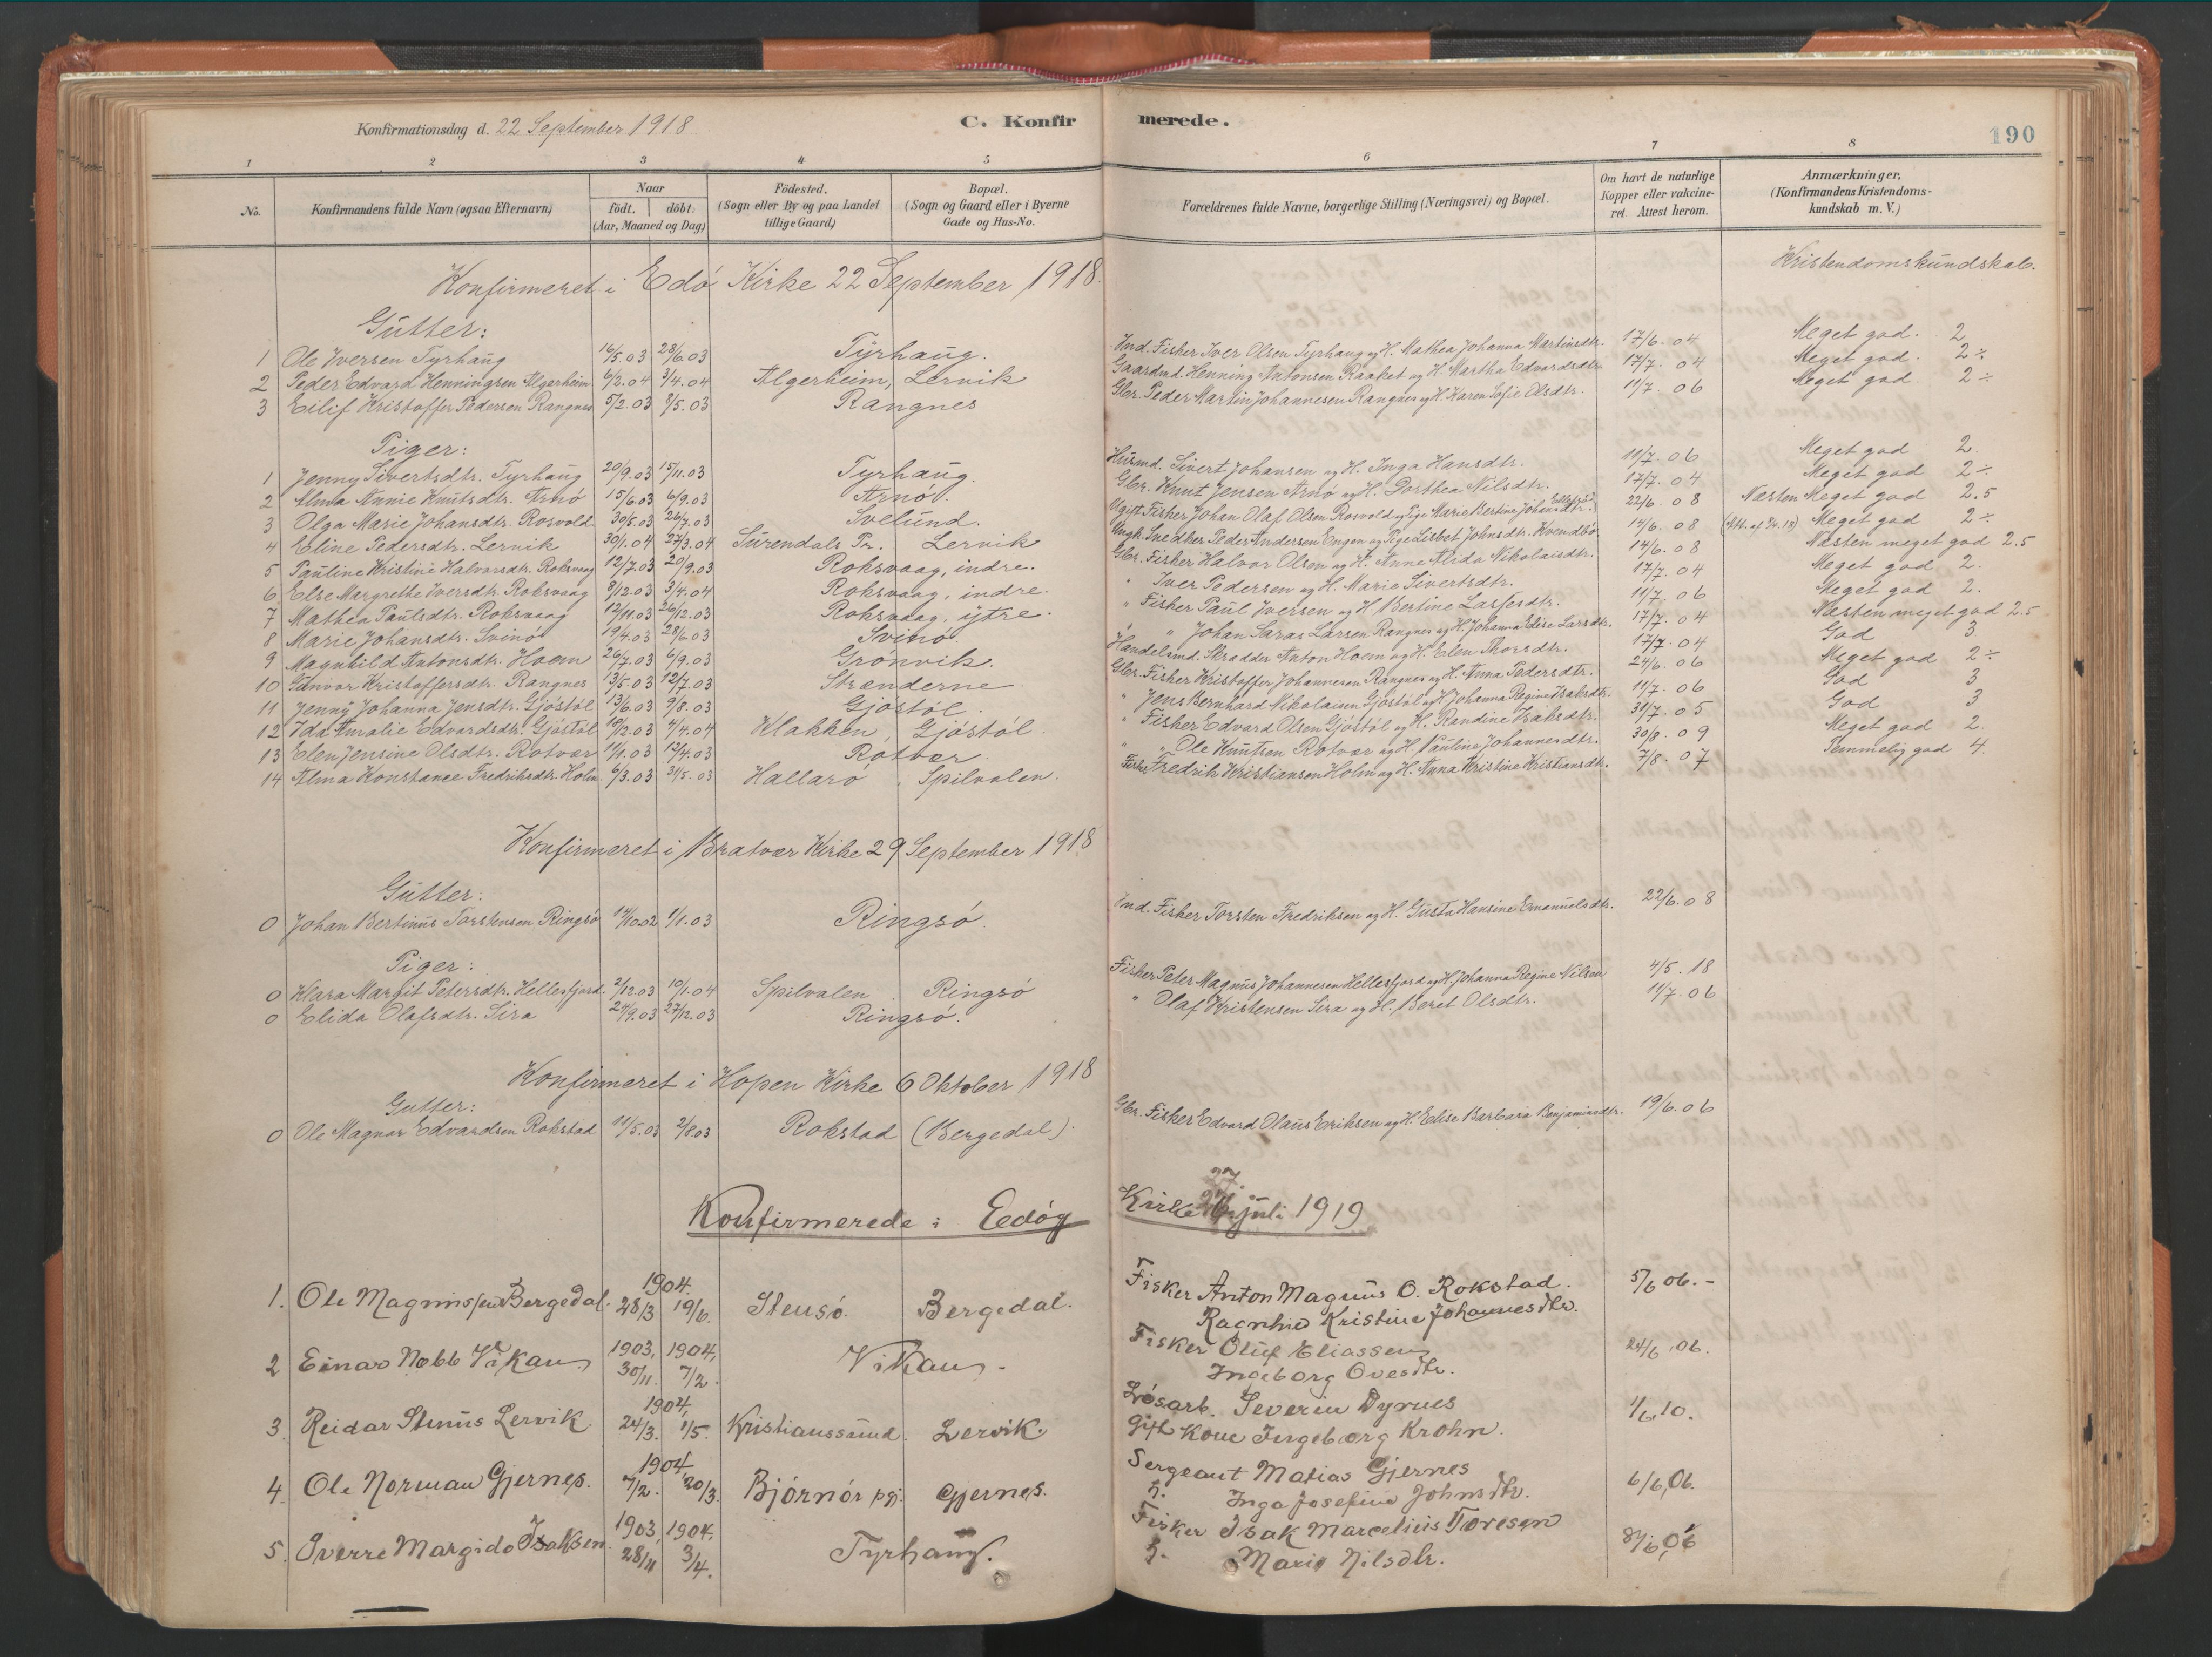 Konfirmationsdag d. 22 September 1918
C. Konfirmerede.
190
1 2 3 4 5 6 7 8
No. | Konfirmandens fulde Navn (ogsaa Efternavn) | Naar födt. döbt. (Aar, Maaned og Dag) | Födested. (Sogn eller By og paa Landet tillige Gaard) | Bopæl. (Sogn og Gaard eller i Byerne Gade og Hus-No. | Forældrenes fulde Navne, borgerlige Stilling (Næringsvei) og Bopæl. | Om havt de naturlige Kopper eller vakcineret Attest herom. | Anmærkninger. (Konfirmandens Kristendomskundskab m. V.)
Konfirmeret i Edö Kirke 22 September 1918.
Kristendomskundskab.
Gutter:
1 Ole Iversen Tyrhaug 16/5.03 28/6.03 Tyrhaug. Ind. Fisker Iver Olsen Tyrhaug og H. Mathea Johanna Martinsdtr. 17/6.04 Meget god. 2
2 Peder Edvard Henningsen Algerheim 6/2.04 3/4.04 Algerheim, Lervik Gaardmd. Henning Antonsen Raaket og H. Martha Edvardsdtr. 17/7.04 Meget god. 2÷
3 Eilif Kristoffer Pedersen Rangnes 5/2.03 3/5.03 Rangnes Gbr. Peder Martin Johannesen Rangnes og H. Karen Sofie Olsdtr. 11/7.06 Meget god 2÷
Piger:
1 Jenny Sivertsdtr. Tyrhaug 20/9.03 15/11.03 Tyrhaug. Husmd. Sivert Johansen og H. Inga Hansdtr. 11/7.06 Meget god 2.
2 Alma Annie Knutsdtr. Arnö 15/6.03 6/9.03 Arnö. Gbr. Knut Jensen Arnö og H. Dorthea Nilsdtr. 17/7.04 Meget god 2÷
3 Olga Marie Johansdtr. Rosvold 30/5.03 26/7.03 Svelund. Ugift Fisker Johan Olaf Olsen Rosvold og Pige Marie Bertine Johansdtr. 22/6.08 Næsten Meget god 2.5
4 Eline Pedersdtr. Lervik 30/1.04 27/3.04 Surendals Pr. Lervik Ungk. Snedker Peder Andersen Engen og Pige Lisbet Johnsdtr. Kvendbö. 14/6.08 Meget god 2÷
5 Pauline Kristine Halvorsdtr. Roksvaag 12/7.03 20/9.03 Roksvaag, indre. Gbr. Fisker Halvor Olsen og H. Anne Alida Nikolaisdtr. 14/6.08 Næsten meget god 2.5
6 Else Margrethe Iversdtr. Roksvaag 9/12.03 3/4.04 Roksvaag, indre. " Iver Pedersen og H. Marie Sivertsdtr. 17/7.04 Meget god 2.
7 Mathea Paulsdtr. Roksvaag 12/11.03 26/12.03 Roksvaag, ytre. " Fisker Paul Iversen og H. Bertine Larsesdtr. 11/7.06 Meget god 2.
8 Marie Johansdtr. Svinö 19/4.03 28/6.03 Svinö. " " Johan Saras Larsen Rangnes og H. Johanna Elise Larsdtr. 17/7.04 Næsten meget god 2.5
9 Magnhild Antonsdtr. Hoem 26/7.03 6/9.03 Grönvik. Handelsmd. Skrædder Anton Hoem og H. Elen Thorsdtr. 17/7.04 God 3.
10 Gunvor Kristoffersdtr. Rangnes 13/5.03 12/7.03 Stranderne Gbr. Fisker Kristoffer Johannesen Rangnes og H. Anna Pedersdtr. 24/6.06 Meget god 2÷
11 Jenny Johanna Jensdtr. Gjöstöl 13/6.03 9/8.03 Gjöstöl. " Jens Bernhard Nikolaisen Gjöstöl og H. Johanna Regine Isaksdtr. 11/7.06 God 3
12 Ida Amalie Edvardsdtr. Gjöstöl 10/12.03 4/4.04 Klakken, Gjöstöl. " Fisker Edvard Olsen Gjöstöl og H. Randine Isaksdtr. 31/7.05 God 3
13 Elen Jensine Olsdtr. Rotvær 11/1.03 12/4.03 Rotvær " " Ole Knutsen Rotvær og H. Pauline Johannesdtr. 30/8.09 Meget god 2.
14 Alma Konstance Fredriksdtr. Holm 6/3.03 31/5.03 Hallarö, Spilvalen. Fisker Fredrik Kristiansen Holm og H. Anna Kristine Kristiansdtr. 7/8.07 Temmelig god 4.
Konfirmeret i Bratvær Kirke 29 September 1918
Gutter:
0 Johan Bertinus Torstensen Ringsö 14/10.02 1/1.03 Ringsö. Ind. Fisker Torsten Fredriksen og H. Gusta Hansine Emanuelsdtr. 22/6.08
Piger:
0 Klara Margit Petersdtr. Hellesfjord. 2/12.03 10/1.04 Spilvalen Ringsö Fisker Peter Magnus Johannesen Hellesfjord og H. Johanna Regine Nilsen 4/5.18
0 Elida Olafsdtr. Sira 24/9.03 27/12.03 Ringsö. " Olaf Kristensen Sira og H. Beret Olsdtr. 11/7.06
Konfirmeret i Hopen Kirke 6 Oktober 1918
Gutter:
0 Ole Magnar Edvardsen Rokstad 11/5.03 2/8.03 Rokstad (Bergedal). Gbr. Fisker Edvard Olaus Eriksen og H. Elise Barbara Benjaminsdtr. 19/6.06
Konfirmerede i Eedöy Kirke 27. juli 1919
1. Ole Magnussen Bergedal. 1904. 28/3 19/6. Stensö. Bergedal. Fisker Anton Magnus O. Rokstad. 5/6 06.-
Ragnhild Kristine Johannesdtr.
2 Einar Nobb Vikan 1903, 30/11. 1904, 7/2. Vikan. Fisker Oluf Eliassen 24/6,06.
Ingeborg Ovesdtr.
3. Reidar Stenus Lervik. 1904, 24/3. 1/5. Kristianssund. Lervik. Lösarb. Severin Dyrnes 1/6,10.
Gift Kone Ingeborg Krohn.
4. Ole Norman Gjernes. 1904, 7/2. 20/3. Björnör pgj. Gjernes. Sergeant Matias Gjernes 6/6,06.
h. Inga Josefine Johnsdtr.
5. Sverre Margido Isaksen. 1903, 28/11 1904. 3/4. Tyrhaug. Fisker Isak Marcelius Toresen
h. Marie Nilsdtr.